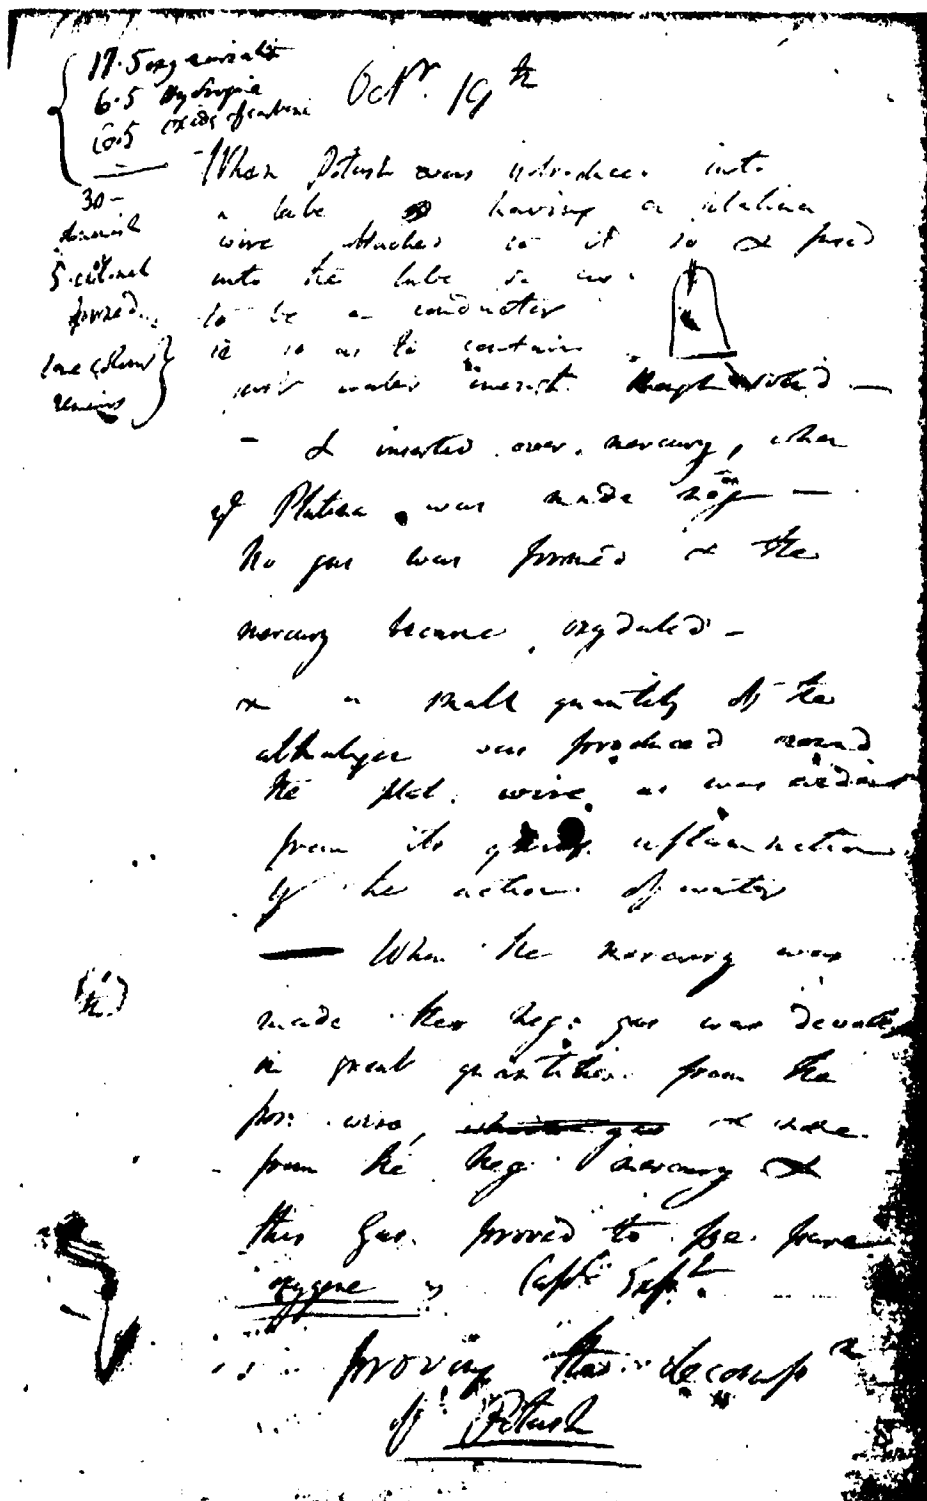 17.5 oxy
6.5 Hydrogene
6.5 oxide of carbone
30 -
diminish
5.
formed..
one column
remains
Octr. 19th
When Potash was introduced into
a tube having a platina
wire attached to it so & fused
into the tube so as
to be a conductor
ie so as to contain
just water though solid —
- & inserted over mercury, when
ye Platina was made neg —
No gas was formed & the
mercury became oxydated -
& a small quantity of the
alkaligen was produced round
the plat. wire as was evident
from its inflammation
by the action of water
— When the mercury was
made the neg: gas was developed
in great quantities from the
pos: wire, & none
from the neg: mercury &
this Gas proved to be pure
oxygene Capl Expt.
proving the decompn
of Potash